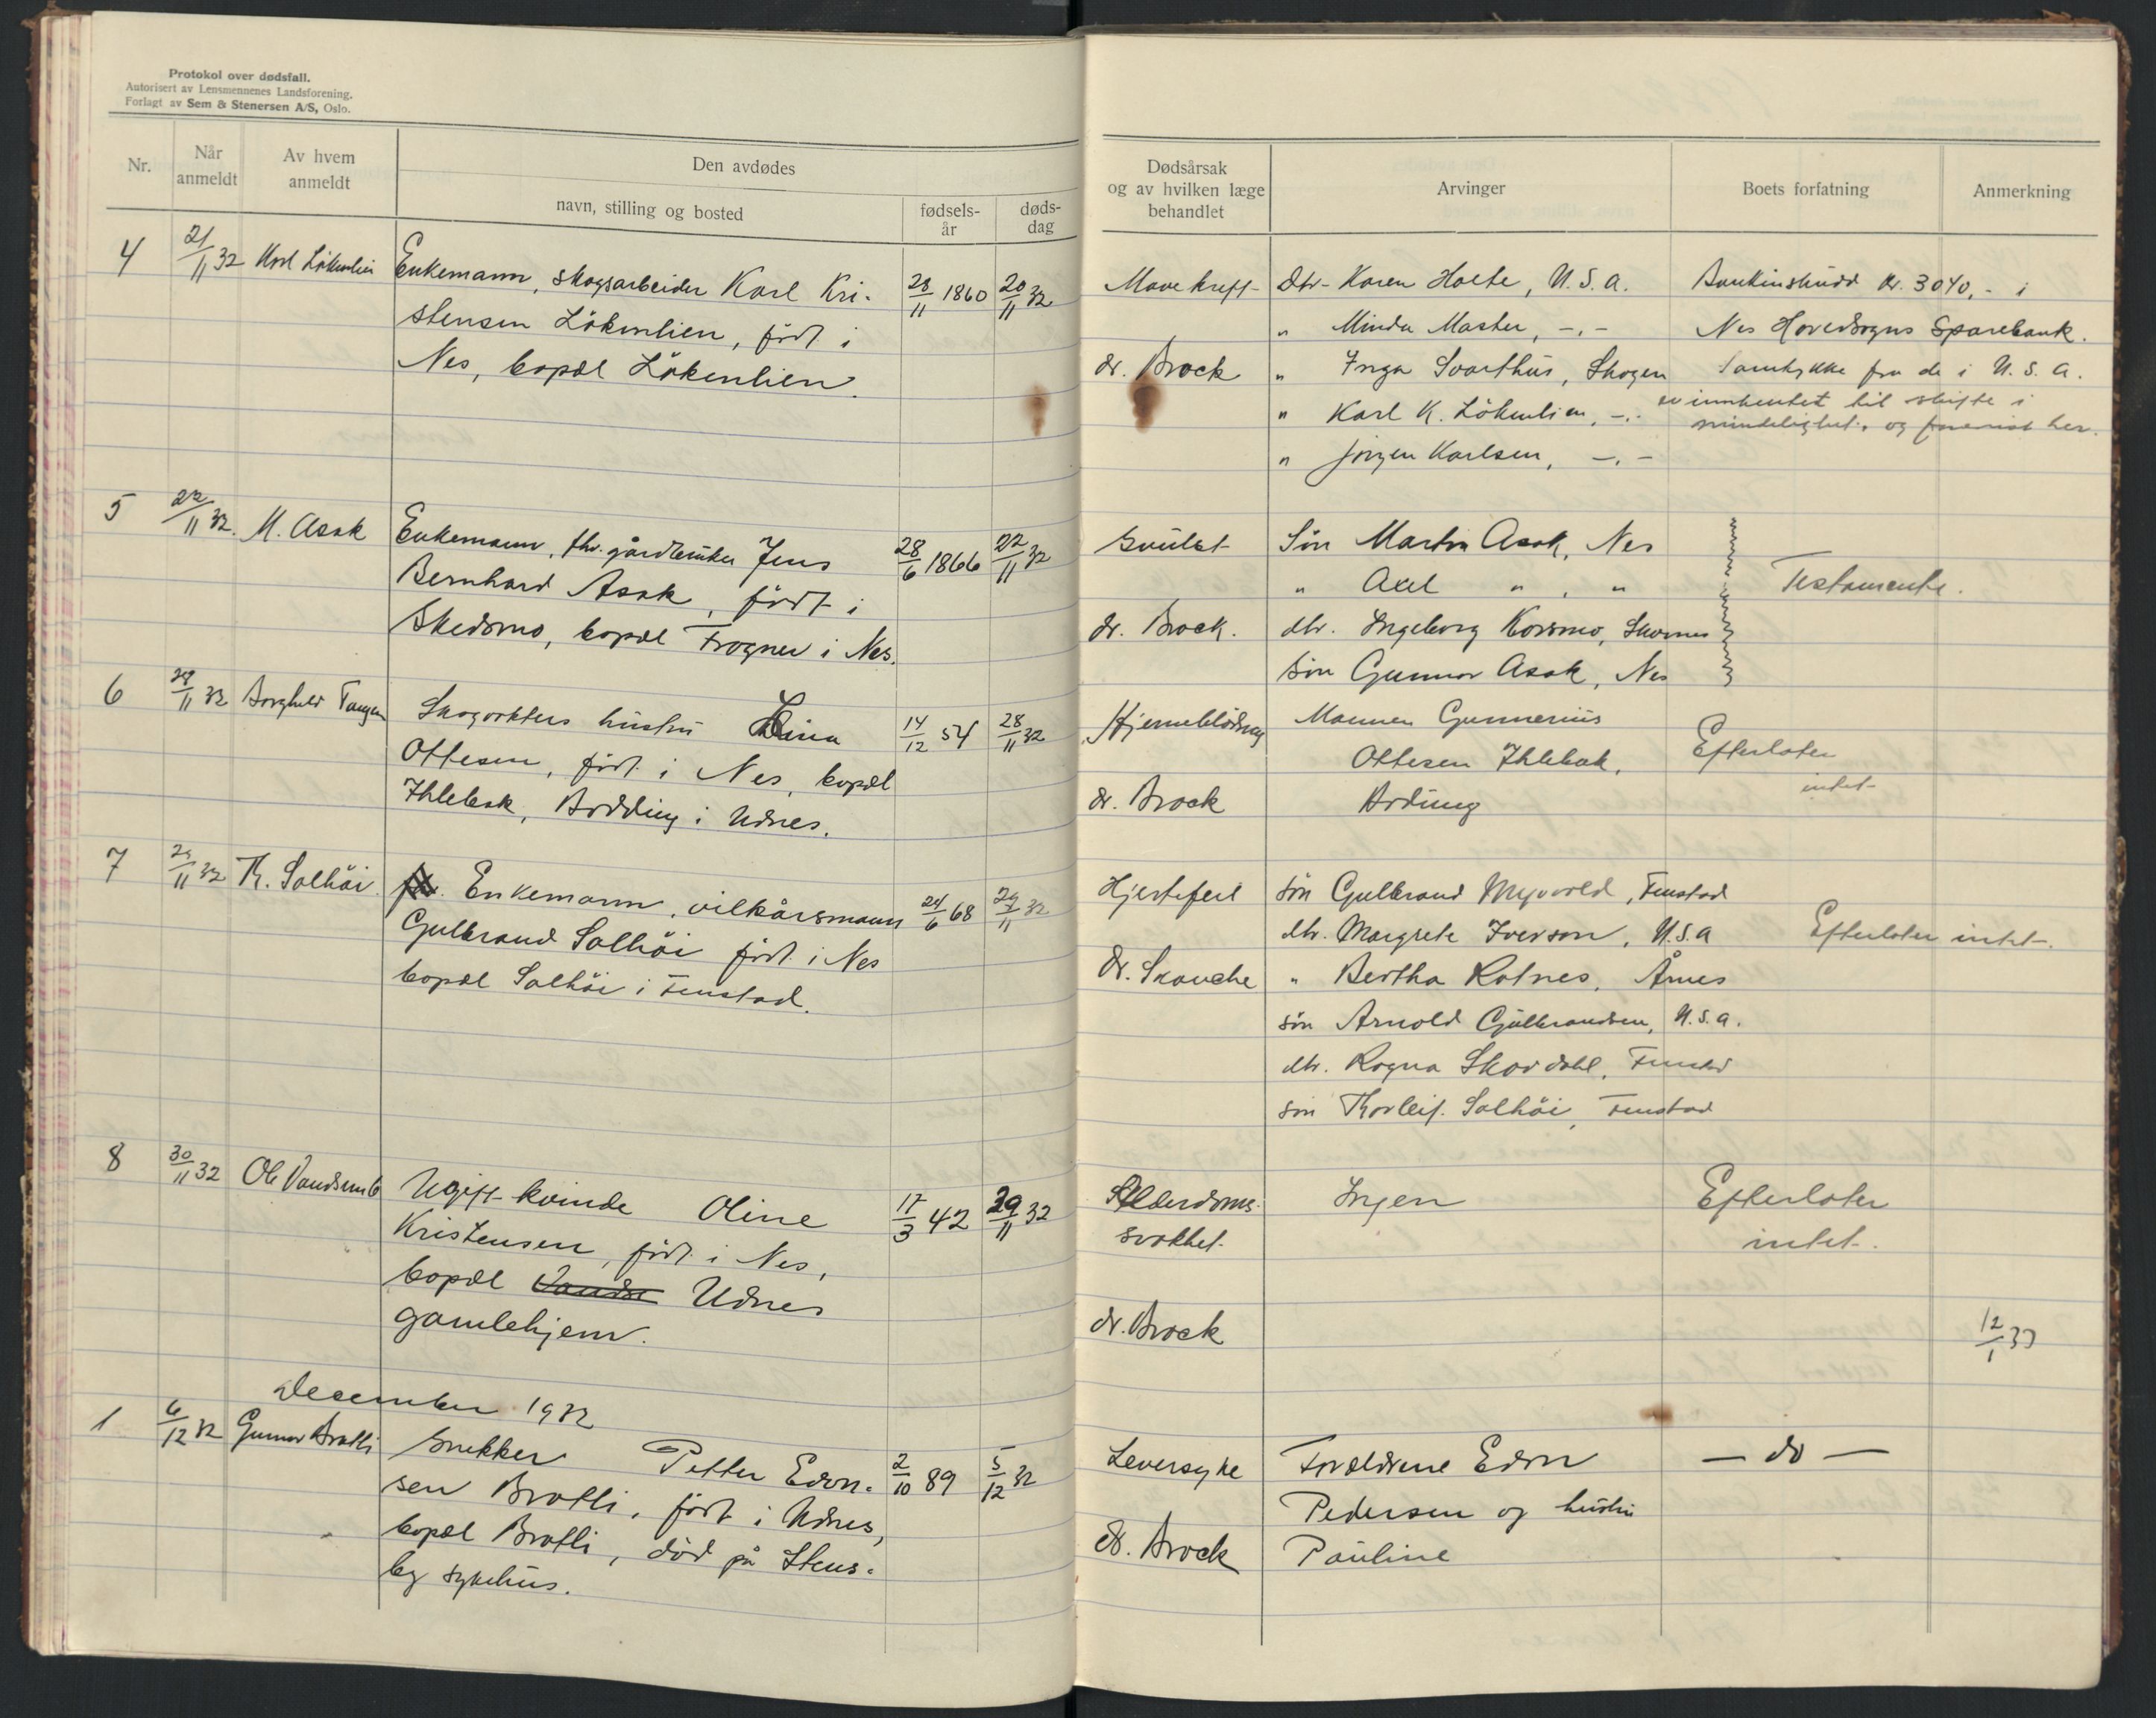 Protokol over dødsfall.
Autorisert av Lensmennenes Landsforening.
Forlagt av Sem & Stenersen A/S, Oslo.
Nr.
Når anmeldt
Av hvem anmeldt
Den avdødes
navn, stilling og bosted
fødsels-
år
døds-
dag
Dødsårsak
og av hvilken læge
behandlet
Arvinger
Boets forfatning
Anmerkning
4
21/11 32
Karl Lökenlien
Enkemann, skogsarbeider Karl Kri-
stensen Lökenlien, födt i
Nes, bopæl Lökenlien.
28/11 1860
20/11 32
Mavekreft
dr. Brock
Dtr. Karen Holte, U.S.A.
" Minda Master, -"-
" Inga Svarthus, Skogen
" Karl K. Lökenlien, -"-
" Jörgen Karlsen, -"-
Bankinskudd kr. 3040,- i
Nes Hovedsogns Sparebank.
Samtykke fra de i U.S.A.
er innhentet til skifte i
mindelighet, og her.
5
22/11 32.
M. Asak
Enkemann, fhv. gårdbruker Jens
Bernhard Asak, födt i
Skedsmo, bopæl Frogner i Nes.
28/6 1866
22/11 32
Svulst
dr. Brock.
Sön Martin Asak, Nes
" Axel " , "
dtr. Ingeborg Korsmo,
sön Gunnar Asak, Nes
Testamente.
6
28/11 32
Borghild Tangen
Skogvokters hustru Lina
Ottesen, födt i Nes, bopæl
Ihlebæk, Brödding i Udnes.
14/12 54
28/11 32
Hjerneblödning
dr. Brock
Mannen Gunnerius
Ottesen Ihlebæk,
Efterlater
intet
7
29/11 32
Th. Solhöi
Enkemann, vilkårsmann
Gulbrand Solhöi födt i Nes
bopæl Solhöi i Fenstad.
24/6 68
29/11 32
Hjertefeil
dr. Skouche
sön Gulbrand Myrvold, Fenstad
dtr. Margrete Iverson, U.S.A
" Bertha Rotnes, Årnes
sön Arnold Gulbrandsen, U.S.A.
dtr. Ragna Skovdahl, Fenstad
sön Thorleif Solhöi, Fenstad
Efterlater intet.
8
30/11 32
Ole Vandsemb
Ugift kvinde Oline
Kristensen, födt i Nes,
bopæl Vandse Udnes
gamlehjem.
17/3 42
29/11 32
Alderdoms-
svakhet
dr. Brock
Ingen
Efterlater
intet.
12/1 33
December 1932
1
6/12 32
Gunnar Bratli
Snekker Petter Edvn.
sen Bratli, födt i Udnes,
bopæl Bratli, död på Stens-
by sykehus.
2/10 89
5/12 32
Leversyke
dr. Brock
Forældrene Edvn
Pedersen og hustru
Pauline
— do —